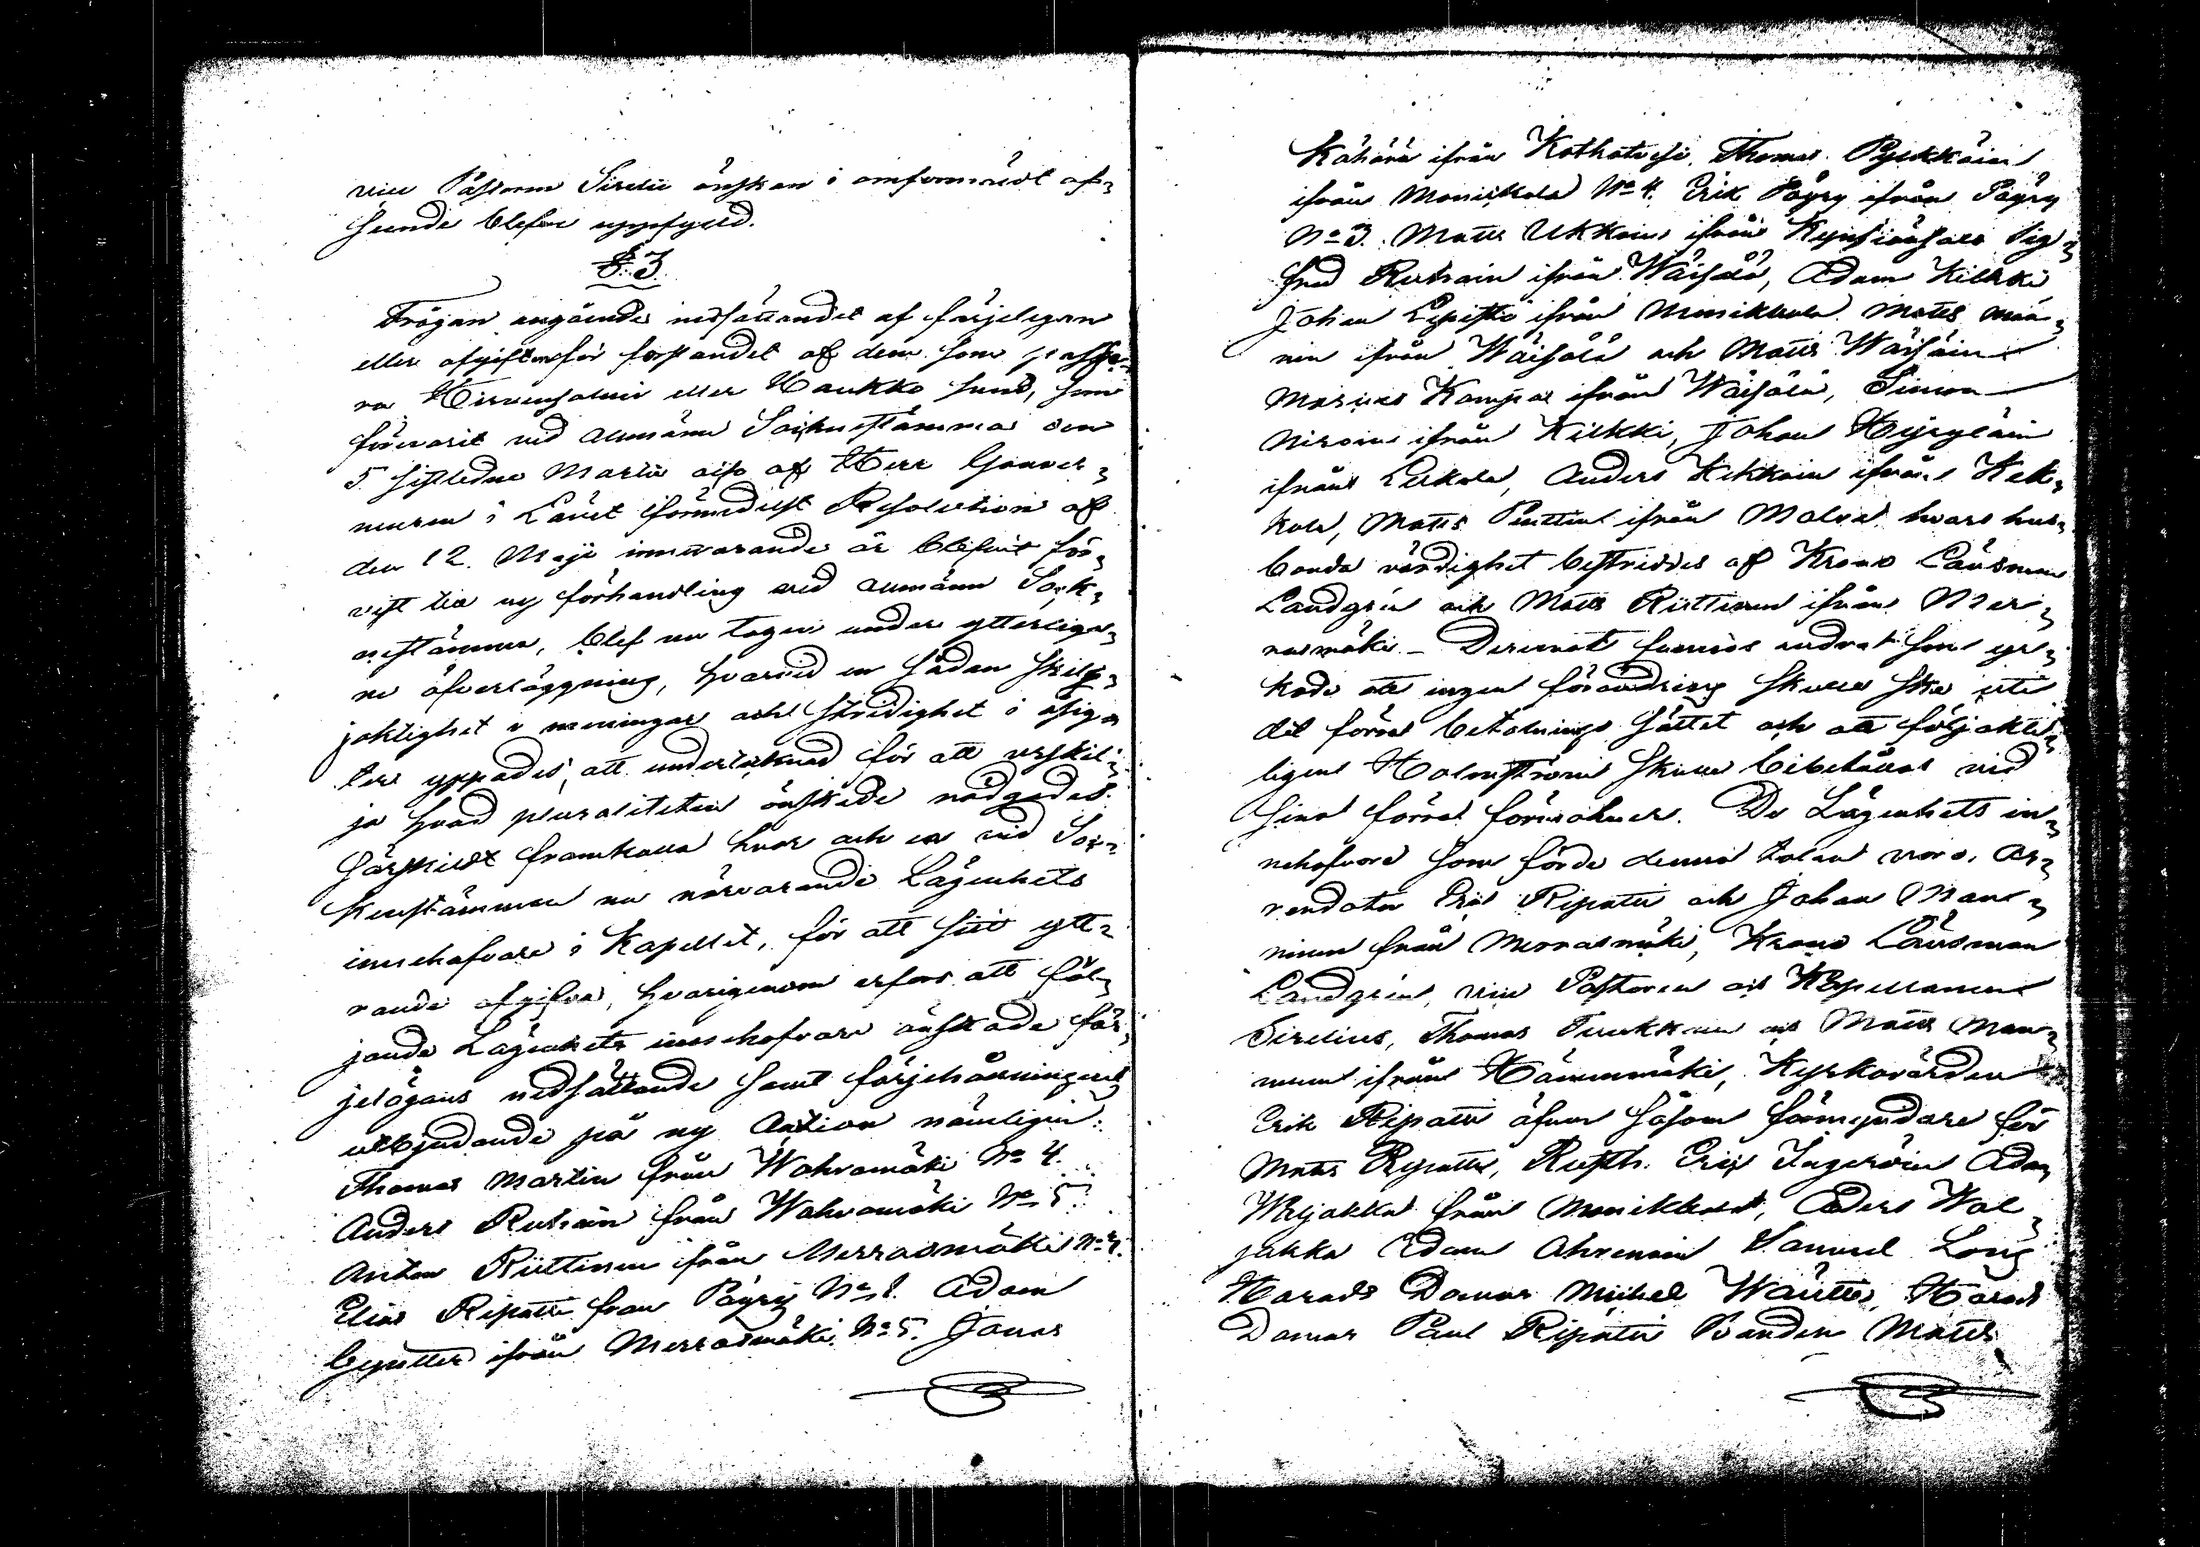 vice Pastorn Sirelii önskan i omförmäldt af-
seende blefve uppfylld.
§ 3.
Frågan angående nedsättandet af färjelegan
eller afgiften för forslandet af dem som passe-
ra Hirvensalmi eller Haukka sund, som
förevarit vid allmänn Sockenstämma den
5 sistledne Martii och af Herr Gouver-
neuren i Länet förmedelst Resolution af
den 12. Maji innevarande år blifvit för-
vist till ny förhandling vid allmänn Sock-
nestämma, blef nu tagen under ytterliga-
re öfverläggning, hvarvid en sådan skilj-
jaktighet i meningar och stridighet i åsig-
ter yppades, att undertecknad för att urskil-
ja hvad pluraliteten önskade nödgades
särskildt framkalla hvar och en vid Soc-
kenstämman nu närvarande Lägenhets
innehafvare i Kapellet, för att sitt ytt-
rande afgifva, hvarigenom erfors att föl-
jande Lägenhets innehafvare önskade fär-
jelegans nedsättande samt färjehållningens
utbjudande på ny Auktion nämligen:
Thomas Martin från Wahvamäki No 4.
Anders Rutsain från Wahvamäki No 5.
Anton Riittinen från Merrasmäki No 2.
Elias Ripatti från Pöyry No 1. Adam
ifrån Merrasmäki No 5. Jonas
Kähärä ifrån Thomas Pylkkäin
ifrån Monikkala No 4. Erik Pöyry ifrån Pöyry
No 3. Matts Ukkoin ifrån Kynsiänsaar Sig-
fred Rutsain ifrån Wäisälä, Adam Kilkki
Johan Lepistö ifrån Monikkala Matts Män-
nin ifrån Wäisälä och Matts Wäisäin
Marcus Kamppa ifrån Wäisälä, Simon
Niroin ifrån Kilkki, Johan Hyryläin
ifrån Anders Kekkoin ifrån Kek-
kola, Matts Penttin ifrån hvars hus-
bonda värdighet bestriddes af Krono Länsman
Landgrén och Matts Riittinen ifrån Mer-
rasmäki. – Deremot funnos andra som yr-
kade att ingen förändring skulle ske uti
det förra betalnings sättet och att följakte-
ligen Holmström skulle bibehållas vid
sina förra förmåner. De Lägenhets in-
nehafvare som förde denna talan voro. Ar-
rendator Eric Ripatti och Johan Man-
ninen från Merrasmäki, Krono Länsman
Landgrén, vice Pastoren och Kapellanen
Sirelius, Thomas Turkkain och Matts Man-
ninen ifrån Hämmmäki, Kyrkovärden
Erik Ripatti äfven såsom förmyndare för
Matts Ripatti, Rusth. Eric Ingeröin Adam
Waljakka från Monikkala, Anders Wal-
jakka Adam Ahvenain Samuel Long
Härads Domar Michel Wäntti, Härads
Domar Paul Ripatti Bonden Matts